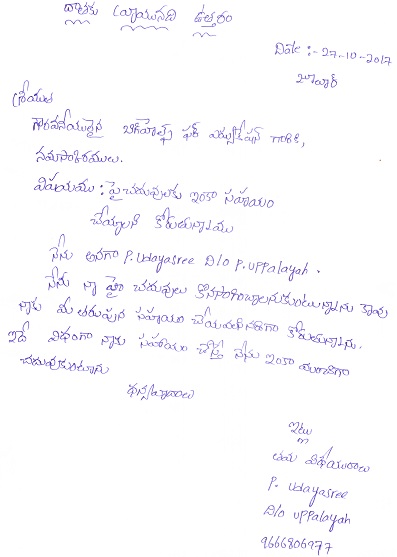 దాతకు వ్రాయునది ఉత్తరం
Date :- 27-10-2017
శ్రీయుత
గౌరవనీయులైన ఫర్ ఎడ్యుకేషన్ గారికి,
నమస్కారములు.
విషయము : పై చదువులకు ఇంకా సహాయం
చేయ్యాలని కోరుతున్నాము
నేను అనగా P. Udayasree D/o P. Uppalayah .
నేను నా పై చదువులు కొనసాగించాలనుకుంటున్నాను కావున
నాకు మీ తరుపున సహాయం చేయవలసినదిగా కోరుతున్నాను.
ఇదే విధంగా నాకు సహాయం చేస్తే నేను ఇంకా మంచిగా
చదువుకుంటాను
ధన్యవాదాలు
ఇట్లు
తమ విధేయురాలు
P. Udayasree
D/o Uppalayah
9666806977